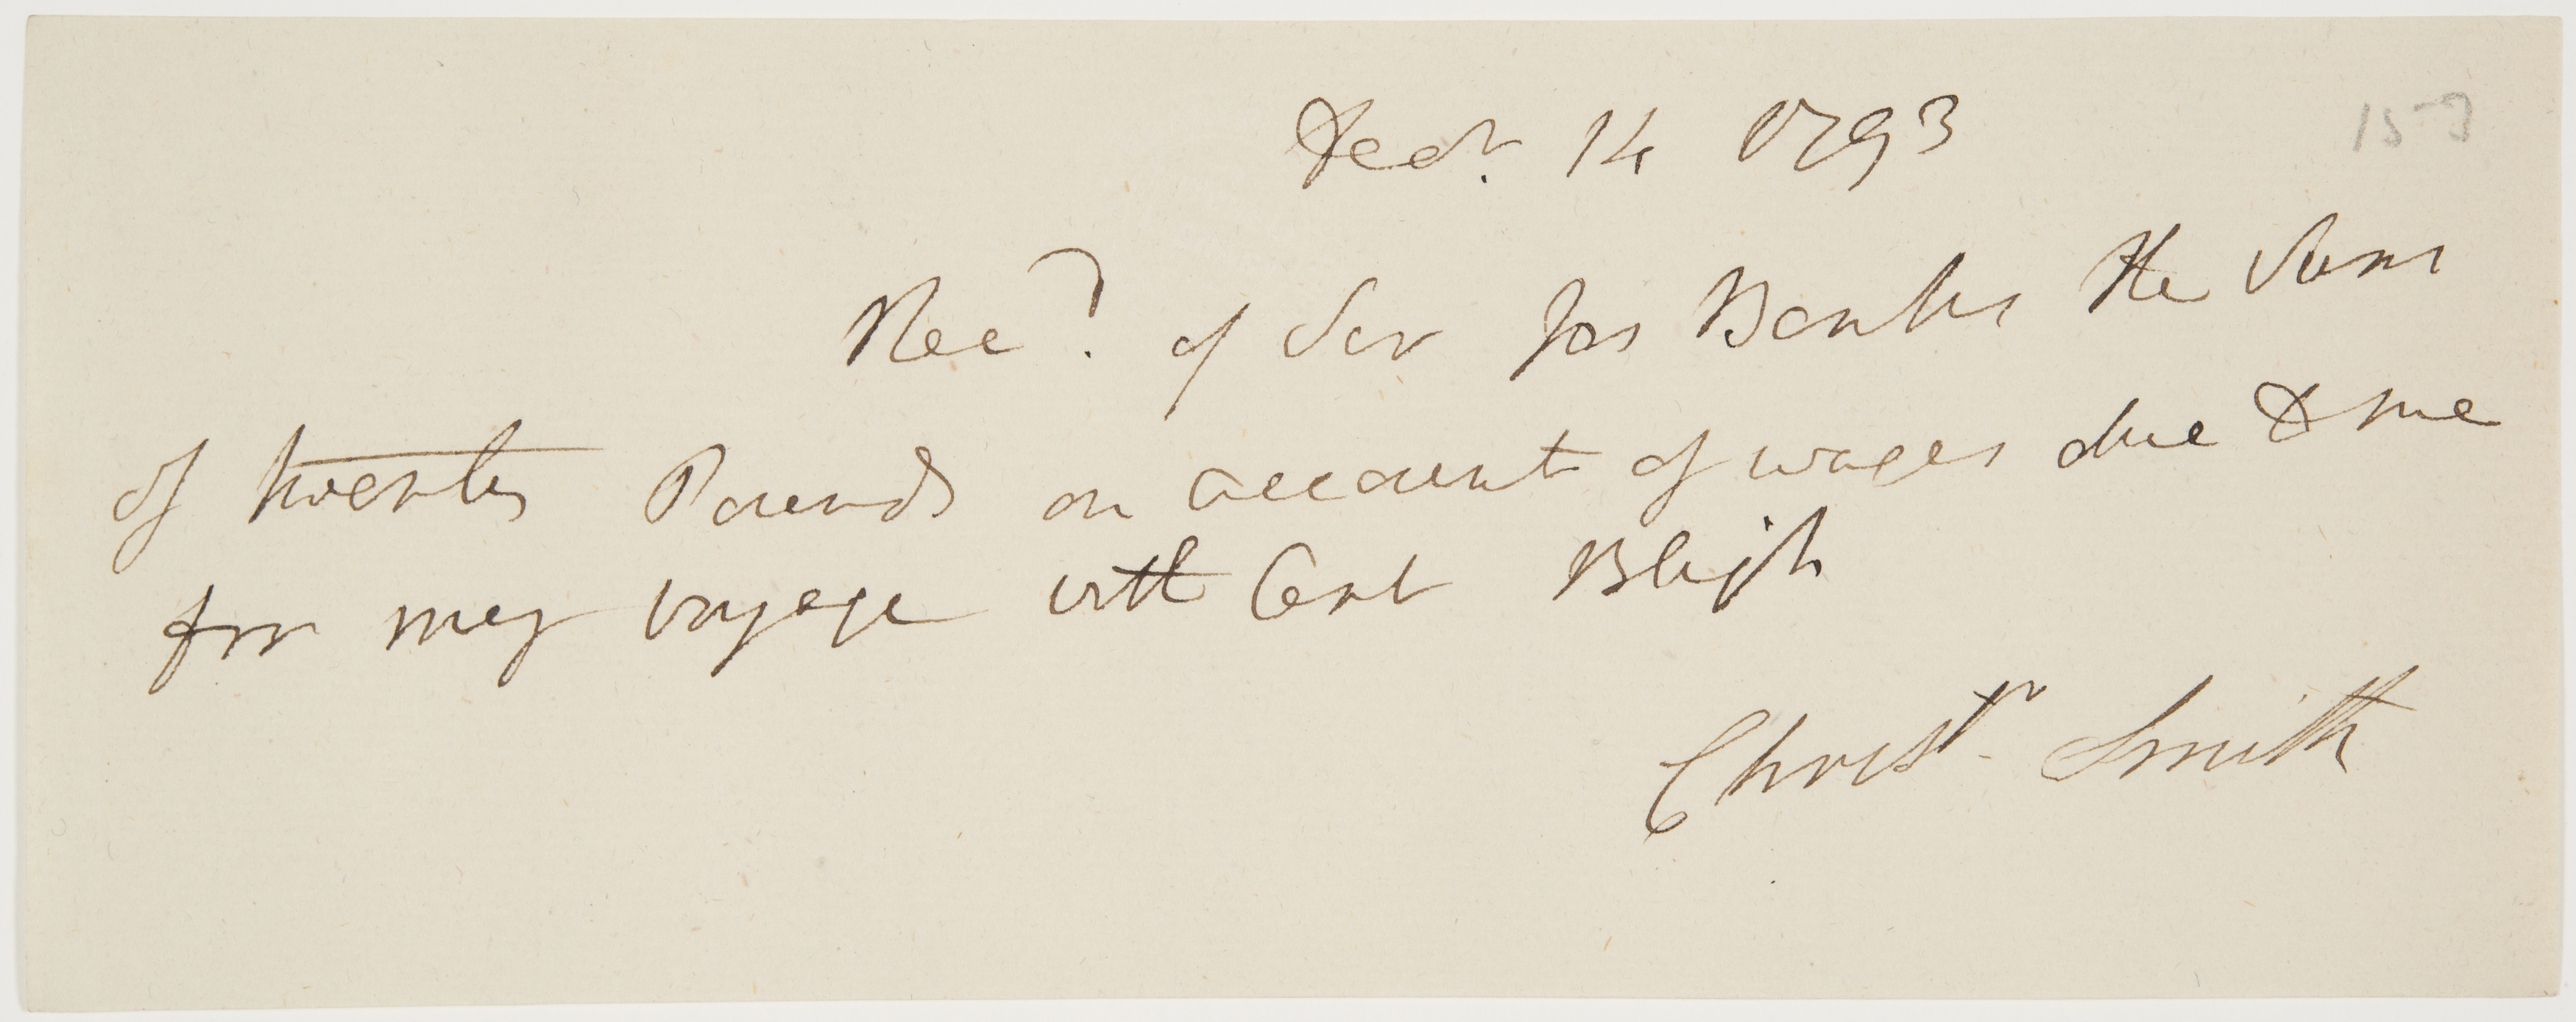 Decr. 14 1793
Recd. of Sir Jos Banks the Sum
of twenty Pounds on account of wages due to me
for my voyage with Capt Bligh
Christr. Smith